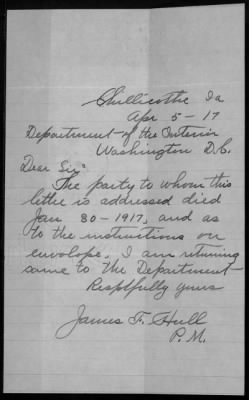 Chillicothe Ia
Apr 5-17
Department of the Interior
Washington D.C.
Dear Sir:
The party to whom this
letter is addressed died
Jan 30-1917, and as
to the instructions on
envolope, I am returning
same to the Department
Resptfully yours
James F. Hull
P.M.